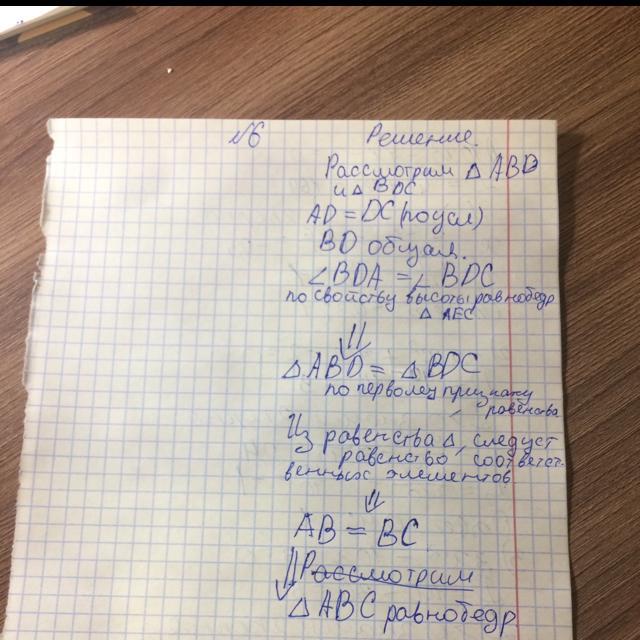 №6 Решение.
Рассмотрим △ ABD
и △ BDC
AD = DC (по усл)
BD общая.
∠BDA = ∠ BDC
по свойству высоты равнобедр
△ AEC
⇓
△ABD = △ BDC
по первому признаку
равенства
Из равенства △, следуст
равенство соответст-
венных элементов
⇓
AB = BC
⇓ Рассмотрим
△ ABC равнобедр